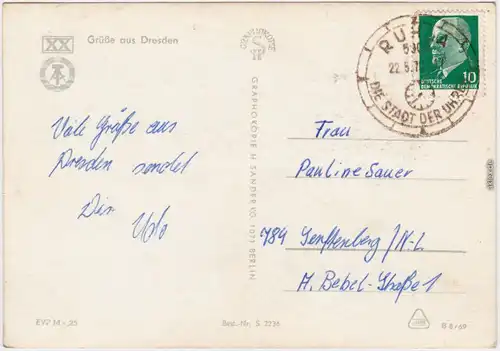 XX
Grüße aus Dresden
Viele Grüße aus
Dresden sendet
Dir Udo
EVP M -,20
Best.-Nr. S 2236
GRAPHOKOPIE H. SANDER KG 1071 BERLIN
GRAPHOKOPIE
RUHLA
590
22.5.7
DIE STADT DER UHREN
DEUTSCHE
DEMOKRATISCHE REPUBLIK
10
Frau
Pauline Sauer
784 Senftenberg/N.-L.
A. Bebel-Straße 1
B 6/69